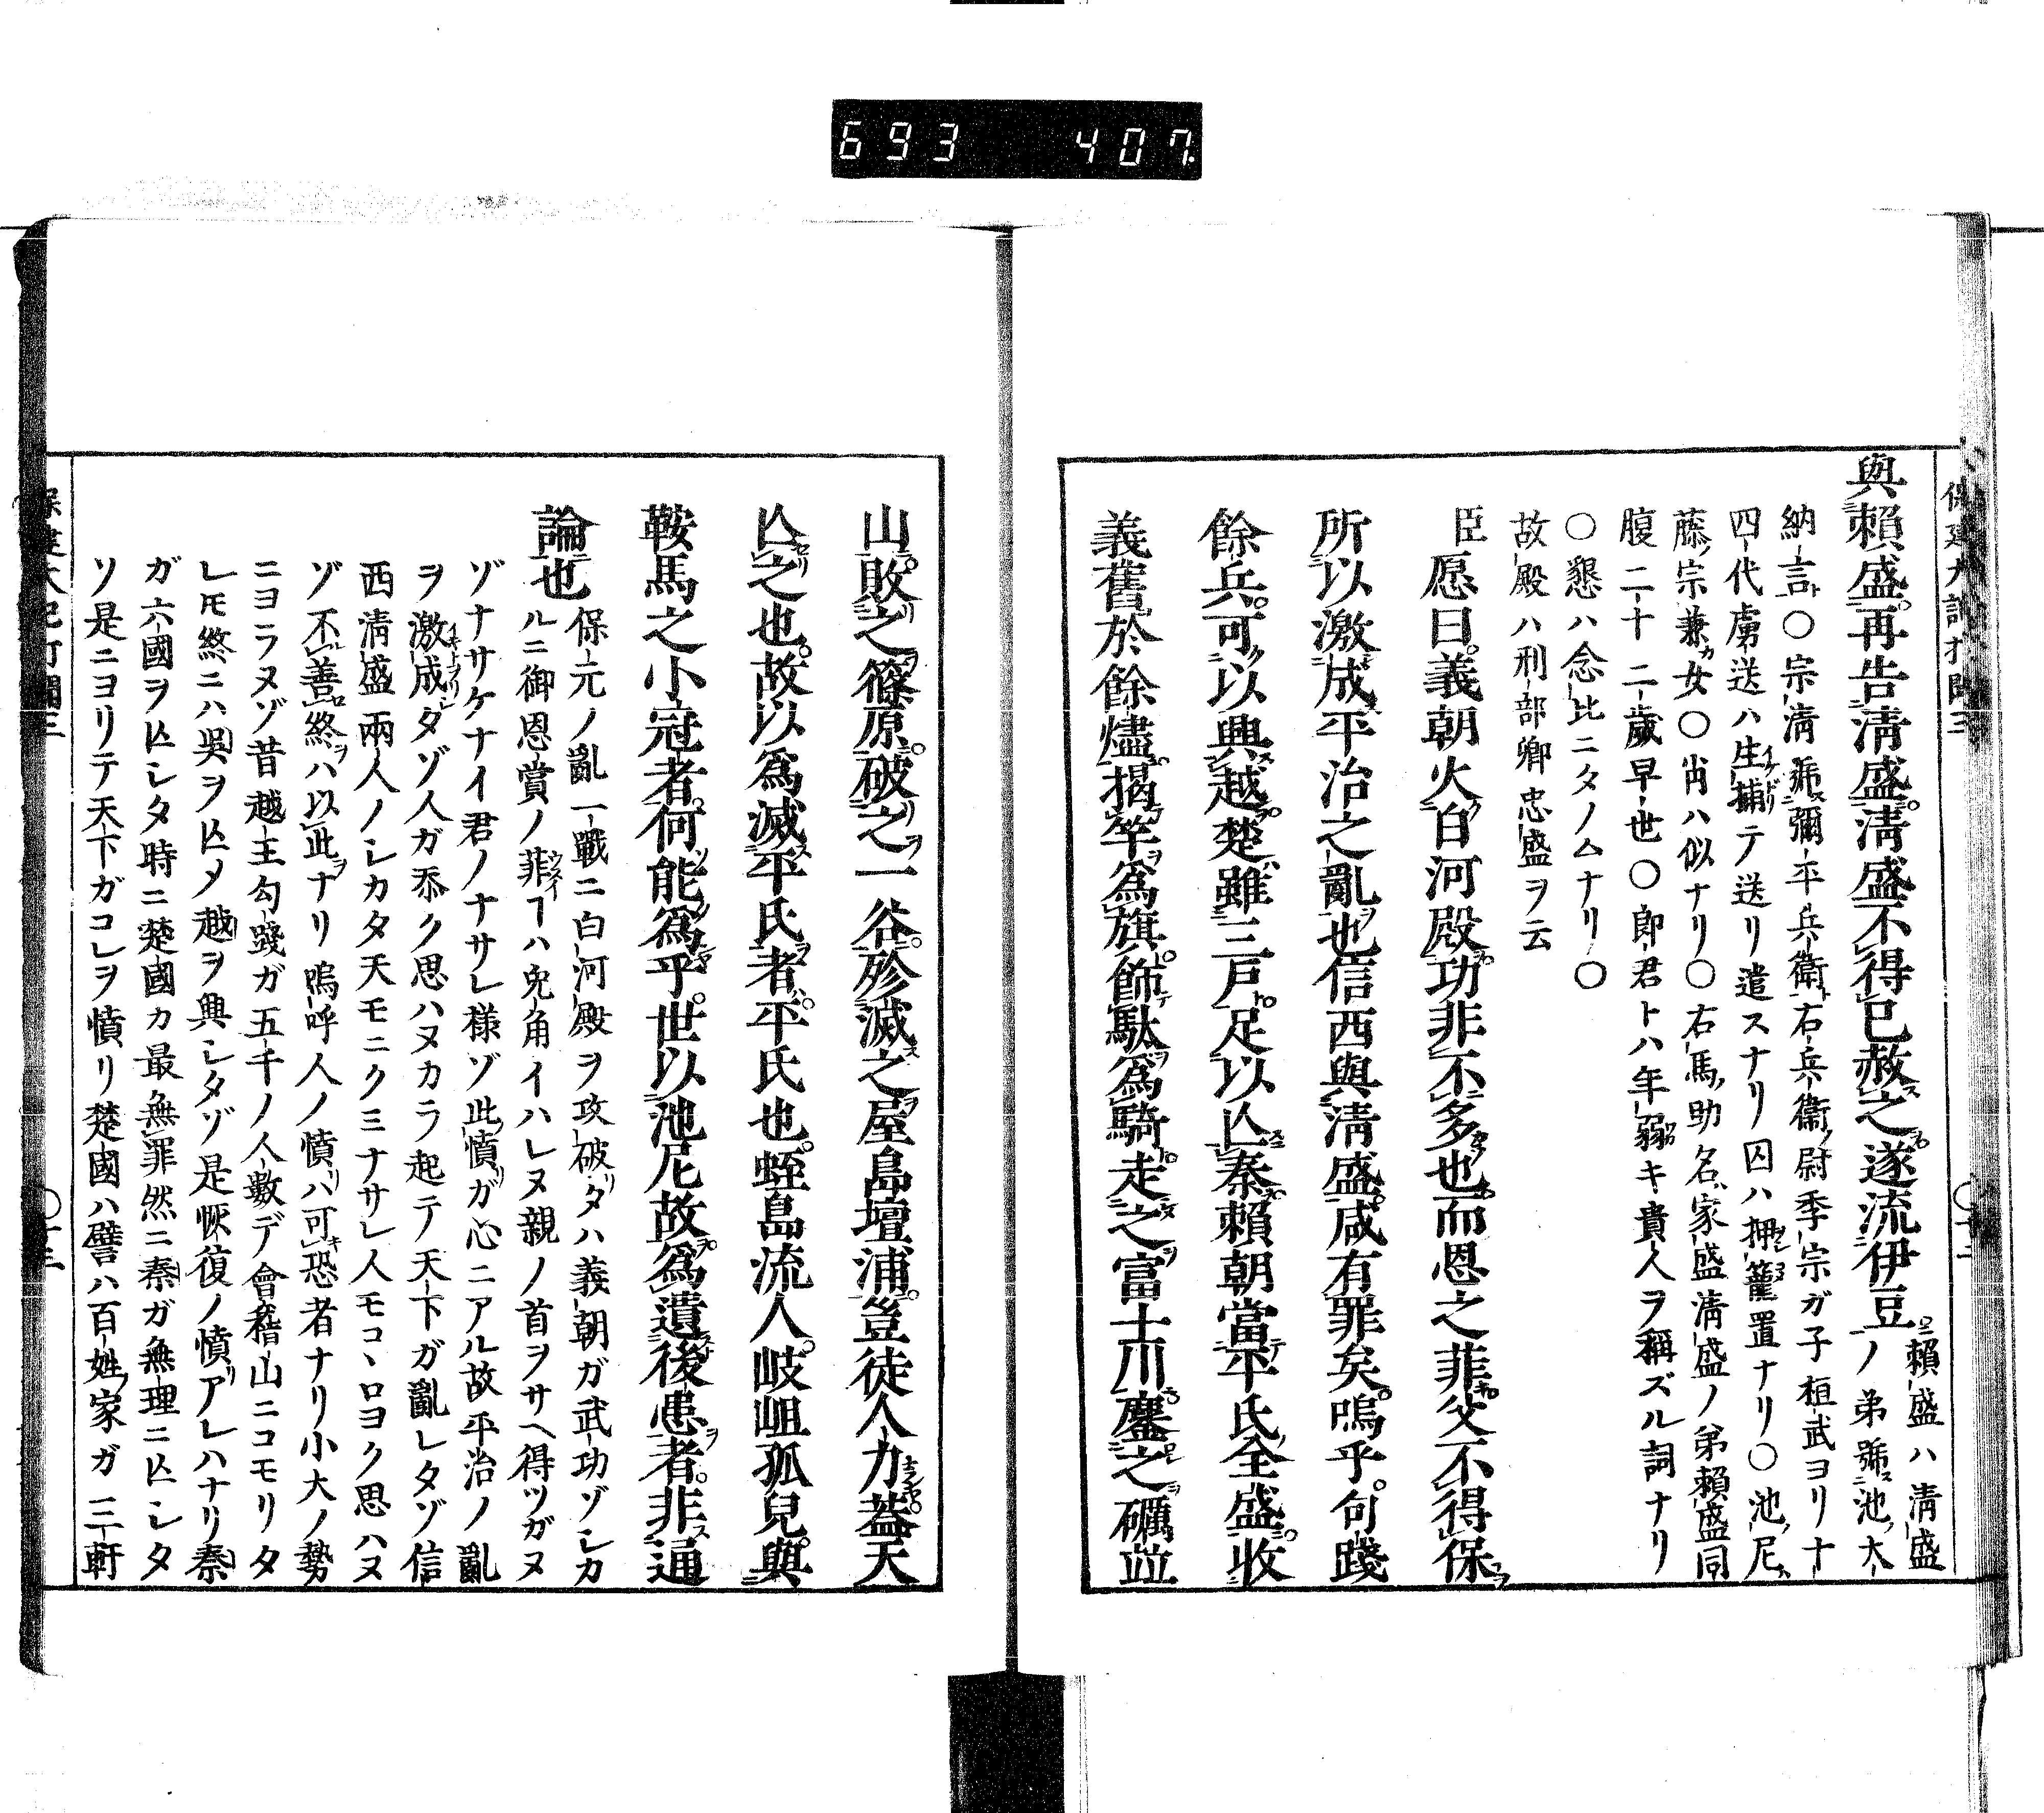 693 407
保建大記打聞三
與賴盛再告淸盛淸盛不得已赦之遂流伊豆
賴盛ハ淸盛
ノ弟號池大
納言○宗淸號彌平兵衞右兵衞尉季宗ガ子桓武ヨリナ
四代虜送ハ生捕テ送リ遣スナリ囚ハ押籠置ナリ○池尼
藤宗兼女○肖ハ似ナリ○右馬助名家盛淸盛ノ弟賴盛同
腹二十二歲早世○郎君トハ年弱キ貴人ヲ稱ズル詞ナリ
○懇ハ念比ニタノムナリ○
故殿ハ刑部卿忠盛ヲ云
臣愿曰義朝火白河殿功非不多也而恩之菲父不得保
所以激成平治之亂也信西與淸盛咸有罪矣嗚乎句踐
餘兵可以興越楚雖三戸足以亾秦賴朝當平氏全盛收
義舊於餘燼揭竿爲旗飾駄爲騎走之富士川鏖之礪並
山敗之篠原破之一谷殄滅之屋島壇浦豈徒人力蓋天
亾之也故以爲滅平氏者平氏也蛭島流人岐岨孤兒與
鞍馬之小冠者何能爲乎世以池尼故爲遺後患者非通
論也
保元ノ亂一戰ニ白河殿ヲ攻破タハ義朝ガ武功ゾシカ
ルニ御恩賞ノ菲ヿハ兎角イハレヌ親ノ首ヲサヘ得ツガヌ
ゾナサケナイ君ノナサレ樣ゾ此憤ガ心ニアル故平治ノ亂
ヲ激成タゾ人ガ忝ク思ハヌカラ起テ天下ガ亂レタゾ信
西淸盛兩人ノシカタ天モニクミナサレ人モコヽロヨク思ハヌ
ゾ不善終ハ以此ナリ嗚呼人ノ憤ハ可恐者ナリ小大ノ勢
ニヨラヌゾ昔越王勾踐ガ五千ノ人數デ會稽山ニコモリタ
レ𪜈終ニハ吳ヲ亾メ越ヲ興シタゾ是恢復ノ憤アレハナリ秦
ガ六國ヲ亾シタ時ニ楚國カ最無罪然ニ秦ガ無理ニ亾シタ
ソ是ニヨリテ天下ガコレヲ憤リ楚國ハ譬ハ百姓家ガ三軒